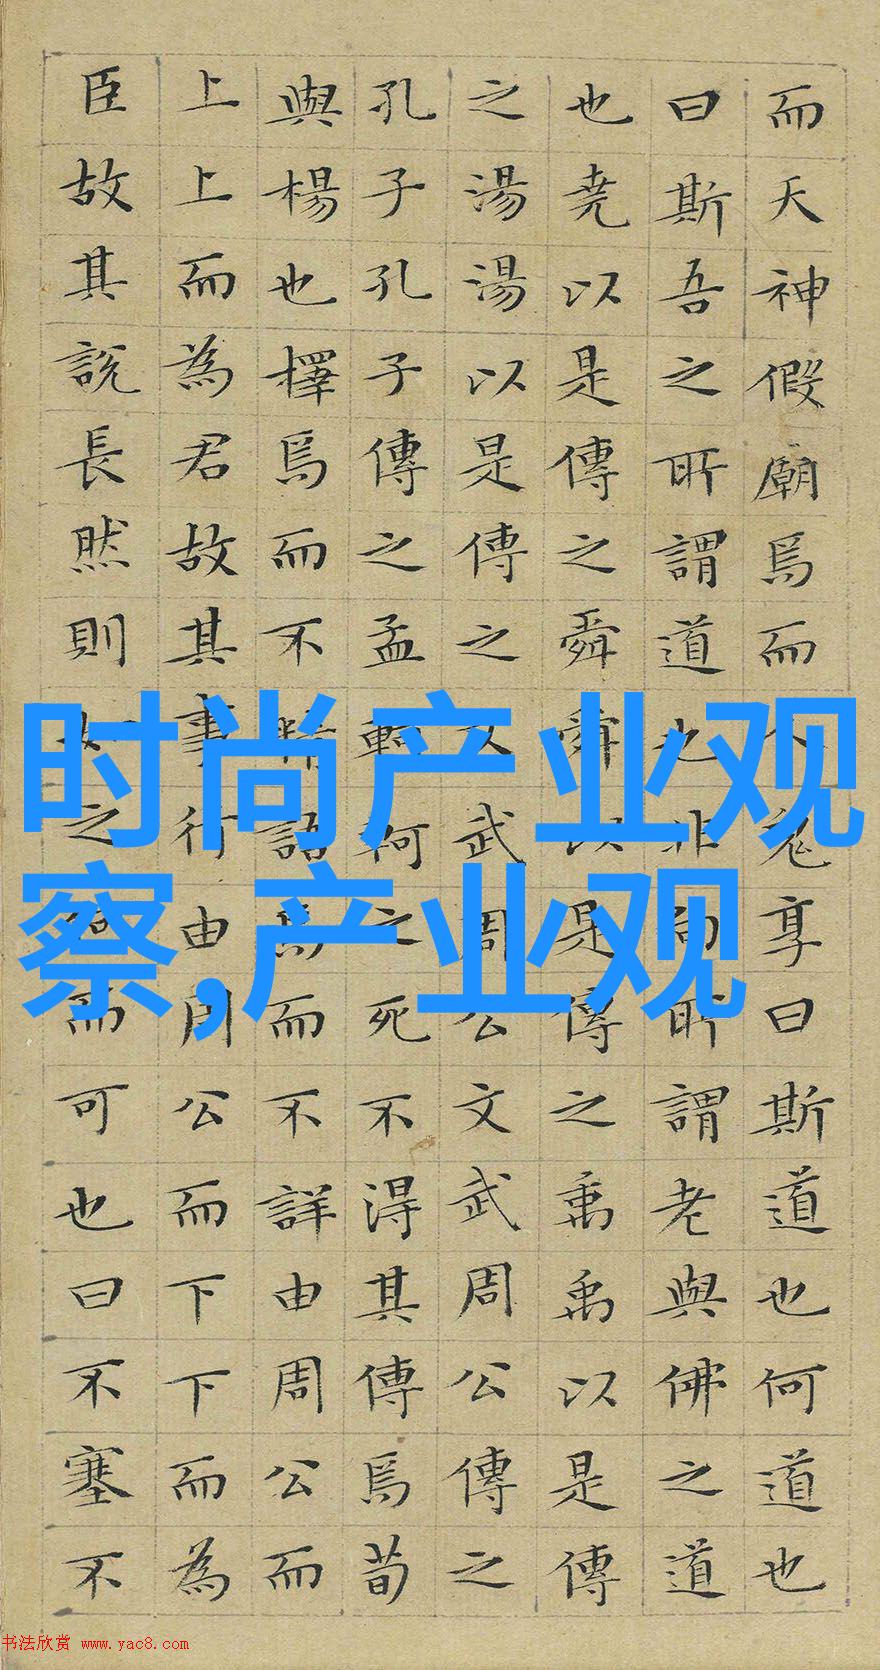 而天神假廟焉而人鬼享曰斯道也何道也
曰斯吾之所謂道也非向所謂老與佛之道
也堯以是傳之舜舜以是傳之禹禹以是傳
之湯湯以是傳之文武周公文武周公傳之
孔子孔子傳之孟軻軻之死不得其傳焉荀
與楊也擇焉而不精語焉而不詳由周公而
上上而為君故其事行由周公而下下而為
臣故其說長然則如之何而可也曰不塞不
时尚产业观
察,产业观
书法欣赏 www.yac8.com